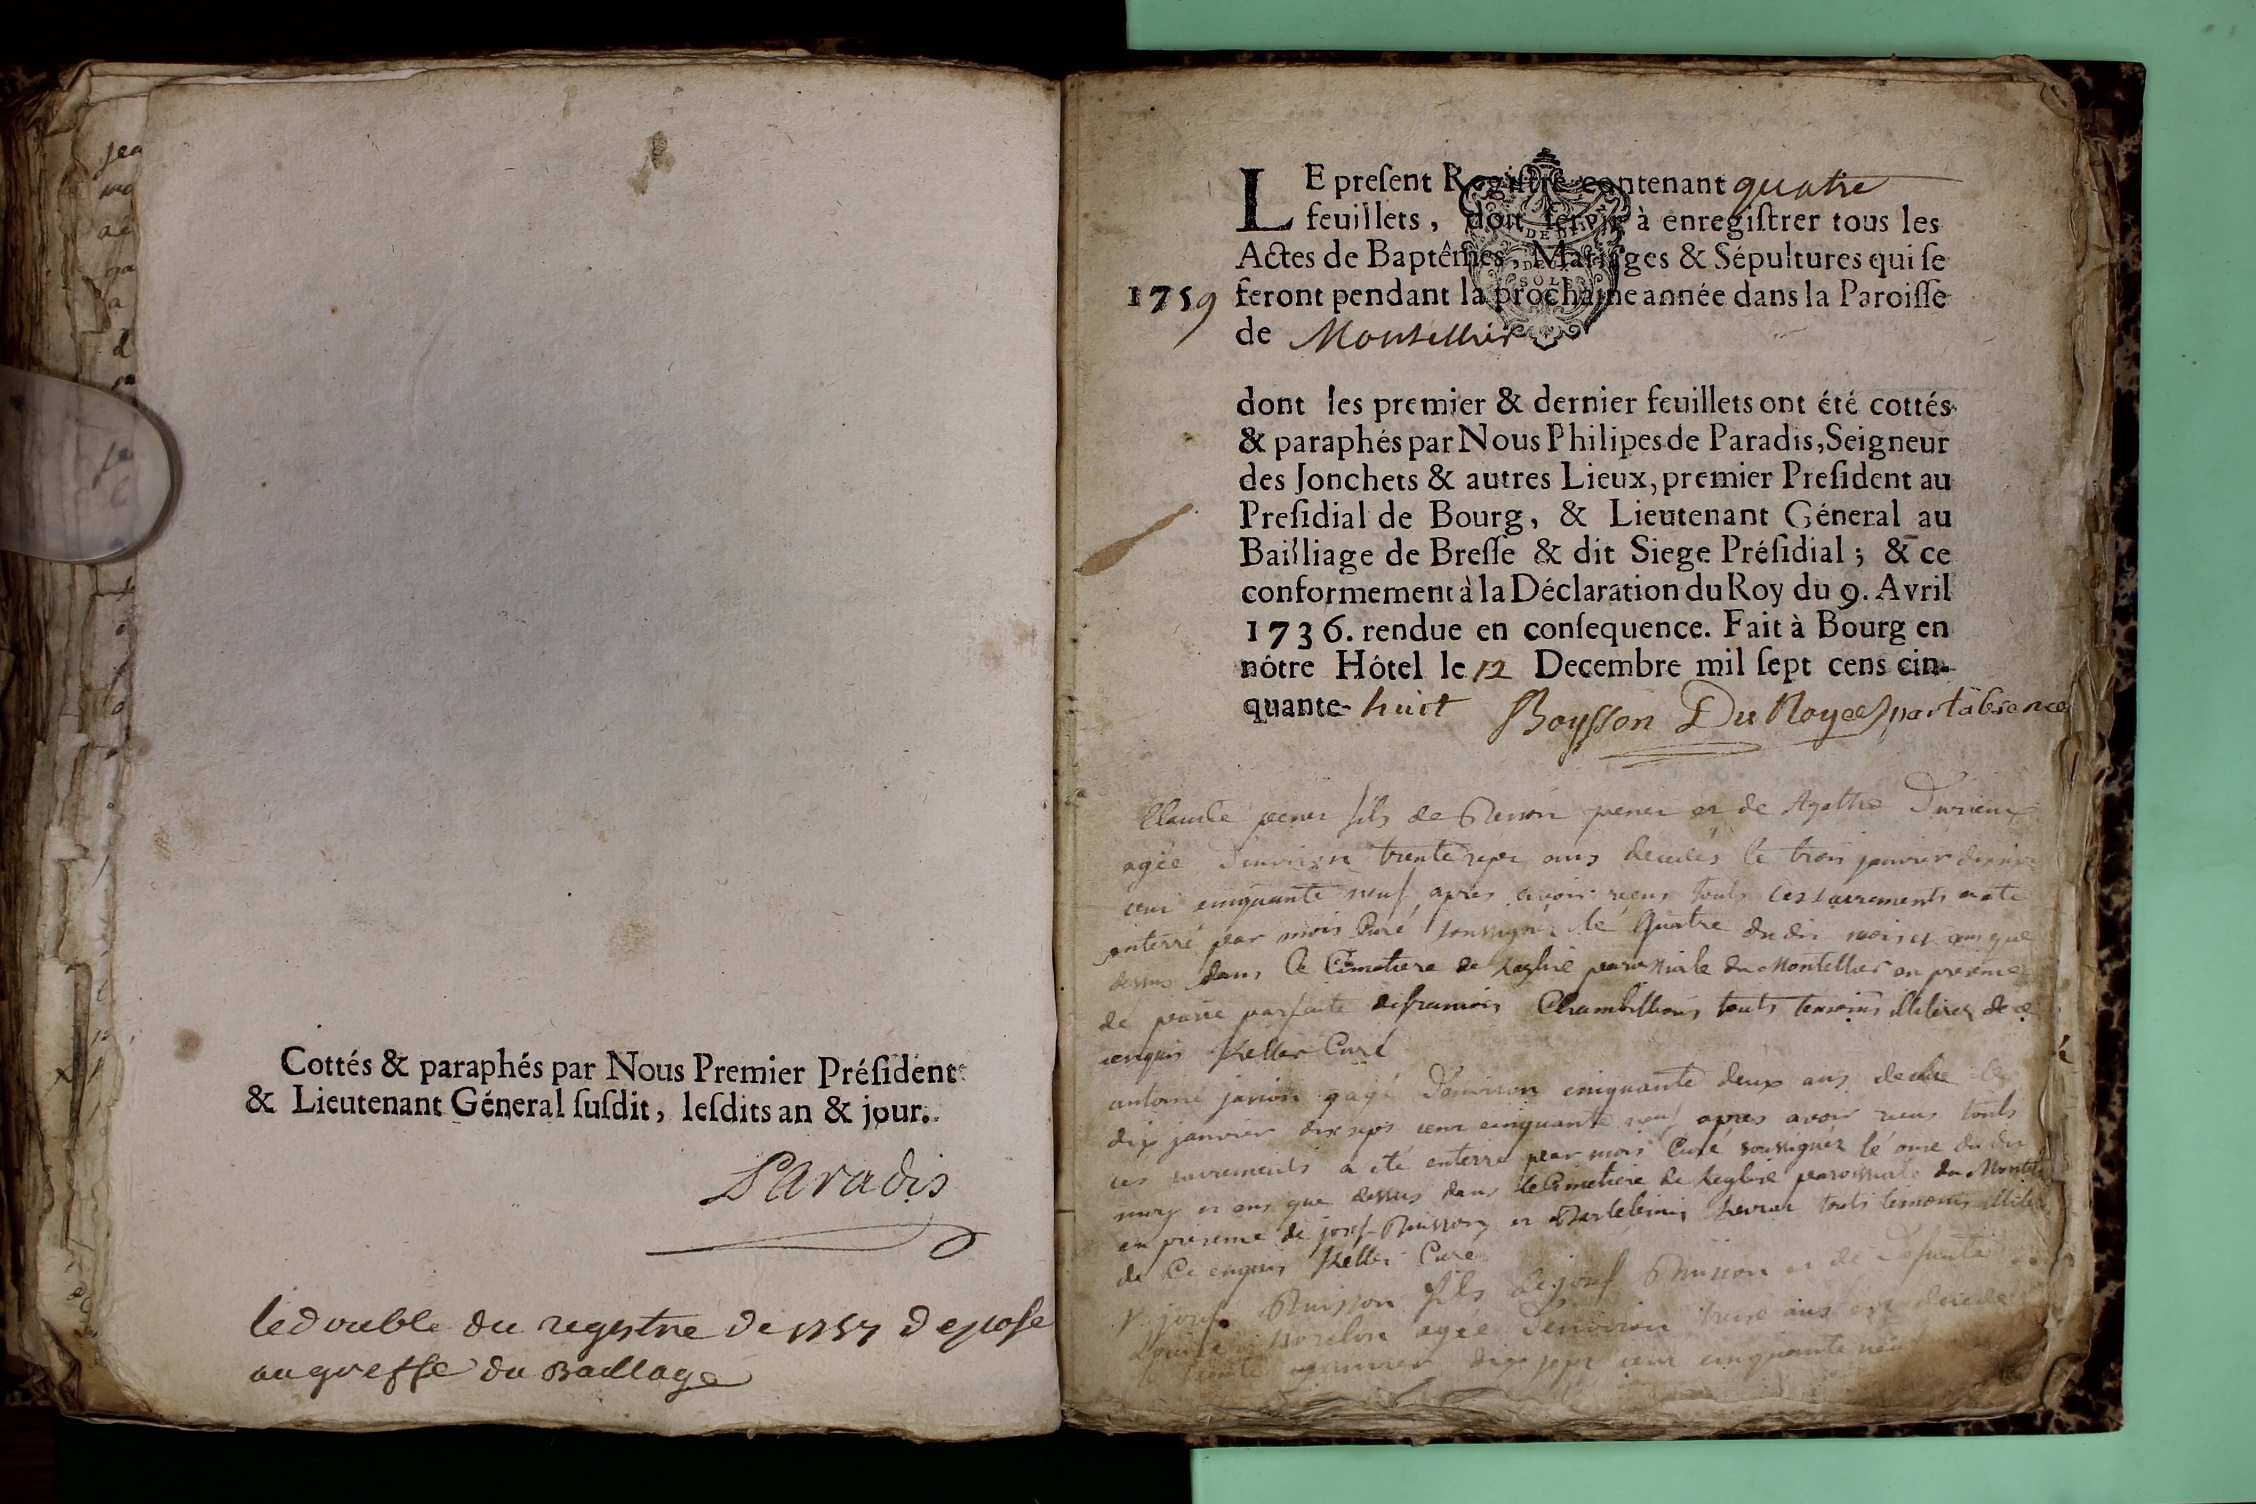 Cottés & paraphés par Nous Premier Préſident
& Lieutenant Géneral ſuſdit, leſdits an & jour.
Paradis
le double du regestre de 1757 depose
au greffe du Baillage
LE preſent Regiſtre contenant quatre
feuillets, doit ſervir à enregiſtrer tous les
Actes de Baptêmes, Mariages & Sépultures qui ſe
1759 feront pendant la prochaine année dans la Paroiſſe
de Montellier
dont les premier & dernier feuillets ont été cottés
& paraphés par Nous Philipes de Paradis, Seigneur
des Jonchets & autres Lieux, premier Preſident au
Preſidial de Bourg, & Lieutenant Géneral au
Bailliage de Breſſe & dit Siege Préſidial ; & ce
conformement à la Déclaration du Roy du 9. Avril
1736. rendue en conſequence. Fait à Bourg en
nôtre Hôtel le 12 Decembre mil ſept cens cin-
quante- huit Boysson Du Noyer par l'absence
Claude pener fils de pener et de Agathe
agée d'environ trente sept ans decedés le trois janvier
cent cinquante neuf apres avoir reçus touts ces sacrements
enterré par mois Curé soussignéz le quatre du dit mois et ans que
dessus dans le Cimetiere de leglise paroissiale du Montellier en presence
de parfaite de francois touts temoins illiterez de ce
enquis Keller Curé
antoine agé d'environ cinquante deux ans decede le
dix janvier dix sept cent cinquante neuf apres avoir reçus touts
ces sacrements a été enterré par mois Curé soussignéz le onze du dit
mois et ans que dessus dans le Cimetiere de leglise paroissiale du
en presence de josef Buisson et touts temoins
de Ce enquis Keller Curé
josef Buisson fils de josef Buisson et de defunte
agée d'environ ans est decede
janvier dix sept cent cinquante neuf